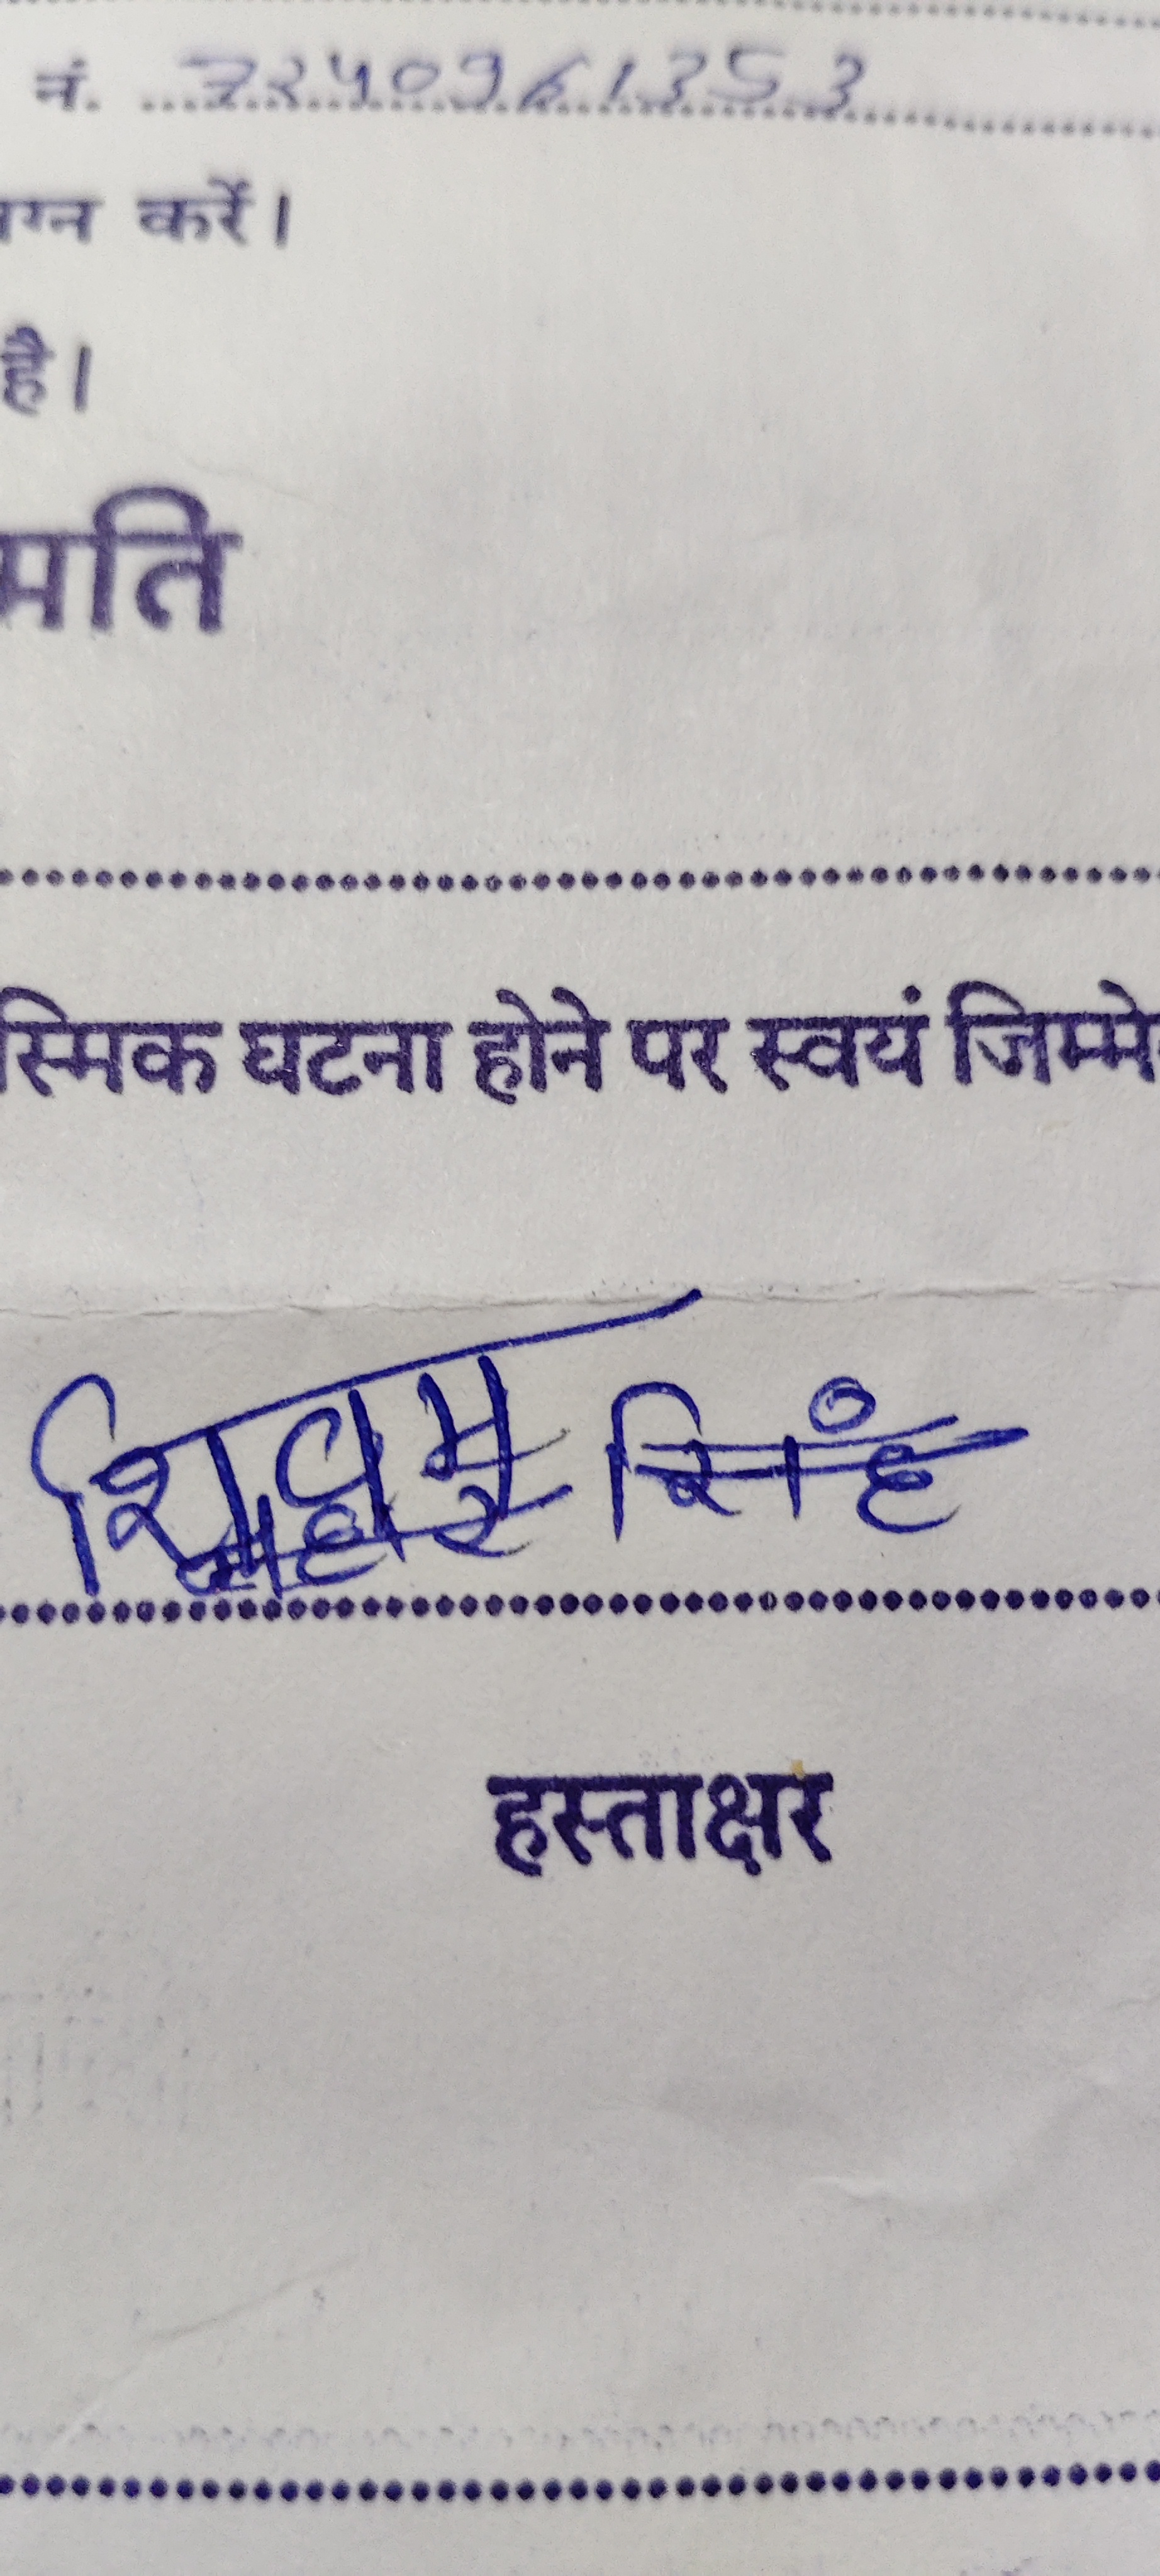 नं. 7240961353
ग्न करें।
है।
मति
स्मिक घटना होने पर स्वयं जिम्मे
शिवम सिंह
हस्ताक्षर